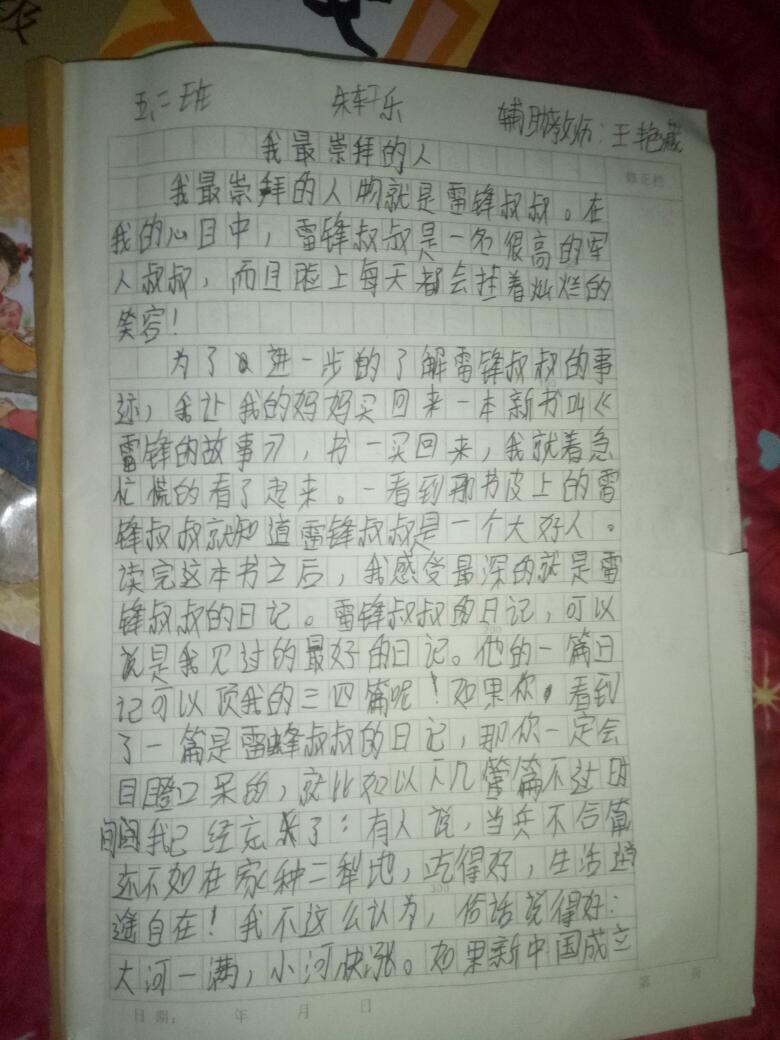 五、二班 朱轩乐 辅助教师：王艳薇
我最崇拜的人
修正栏
我最崇拜的人物就是雷锋叔叔。在
我的心目中，雷锋叔叔是一名很高的军
人叔叔，而且脸上每天都会挂着灿烂的
笑容！
为了进一步的了解雷锋叔叔的事
迹，我让我的妈妈买回来一本新书叫《
雷锋的故事》，书一买回来，我就着急
忙慌的看了起来。一看到那书皮上的雷
锋叔叔就知道雷锋叔叔是一个大好人。
读完这本书之后，我感受最深的就是雷
锋叔叔的日记。雷锋叔叔的日记，可以
说是我见过的最好的日记。他的一篇日
记可以顶我的三四篇呢！如果你看到
了一篇是雷蜂叔叔的日记，那你一定会
目瞪口呆的，就比如以下几篇不过时
间我已经忘了：有人说，当兵不合算
还不如在家种二犁地，吃得好，生活逍
遥自在！我不这么认为，俗话说得好：
300
大河一满，小河快涨。如果新中国成立
第 页
日期： 年 月 日